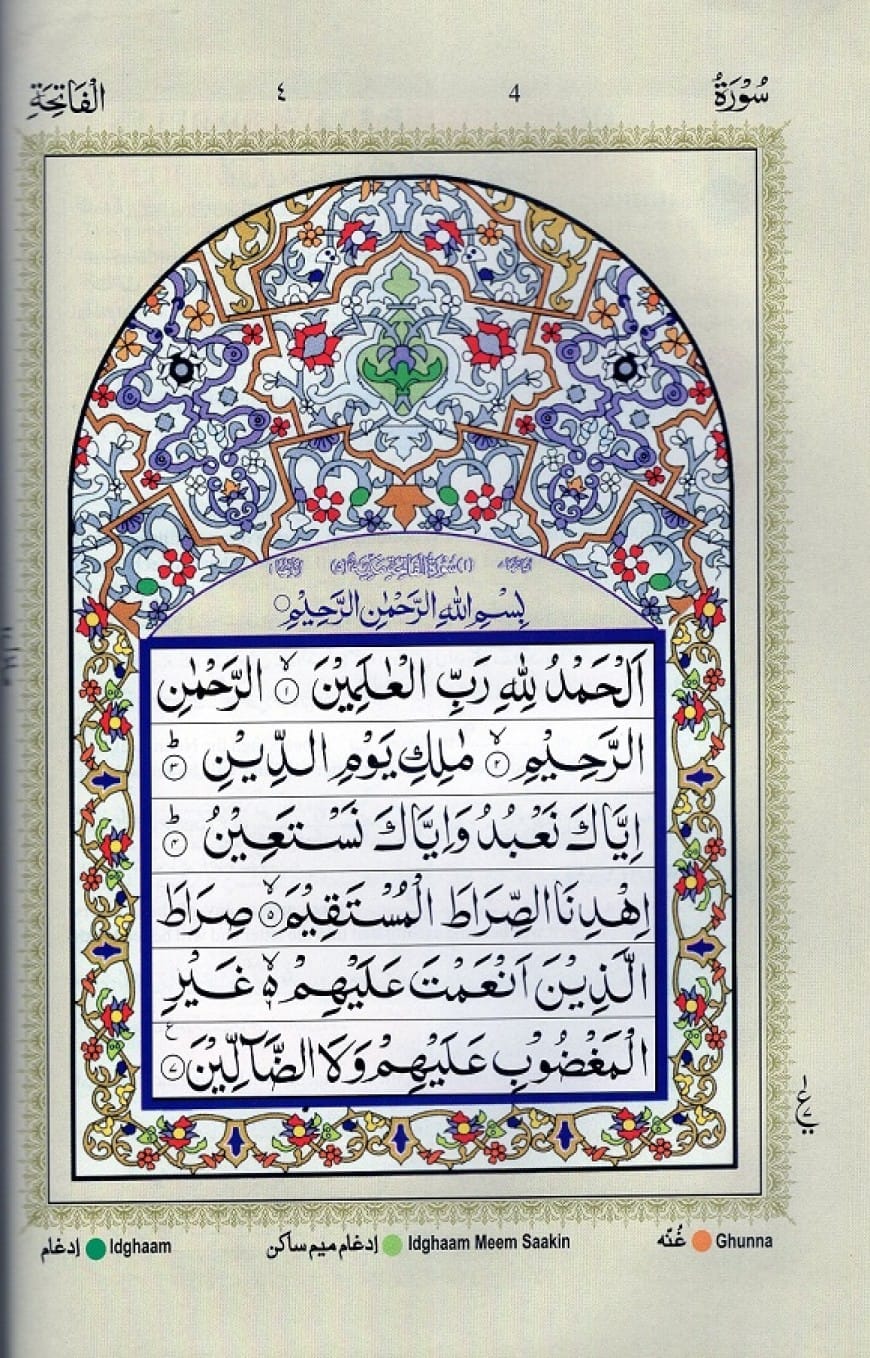 سُوْرَةُ 4 ٤ الْفَاتِحَةِ
(١) سُوْرَةُ الْفَاتِحَةِ مَكِّيَّةٌ (٥)
بِسْمِ اللهِ الرَّحْمٰنِ الرَّحِيْمِ
اَلْحَمْدُ لِلّٰهِ رَبِّ الْعٰلَمِيْنَ ۙ۱ الرَّحْمٰنِ
الرَّحِيْمِ ۙ۲ مٰلِكِ يَوْمِ الدِّيْنِ ؕ۳
اِيَّاكَ نَعْبُدُ وَاِيَّاكَ نَسْتَعِيْنُ ؕ۴
اِهْدِنَا الصِّرَاطَ الْمُسْتَقِيْمَ ۙ۵ صِرَاطَ
الَّذِيْنَ اَنْعَمْتَ عَلَيْهِمْ ۙ۶ غَيْرِ
الْمَغْضُوْبِ عَلَيْهِمْ وَلَا الضَّآلِّيْنَ ۷
إدغام Idghaam إدغام ميم ساكن Idghaam Meem Saakin غُنّه Ghunna